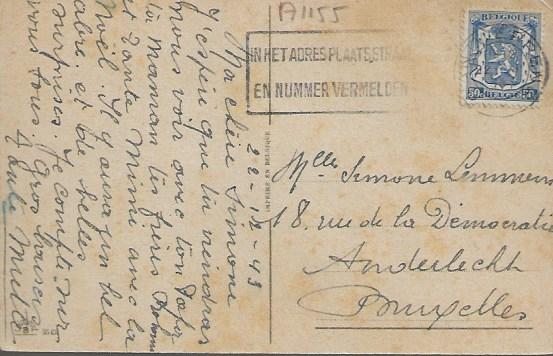 A1155
IN HET ADRES PLAATS, STRAAT
EN NUMMER VERMELDEN
BELGIQUE
50c BELGIE 50c
IMPRIMÉ EN BELGIQUE
22-12-43
Ma chère Simone
J'espère que tu viendras
nous voir avec ton Papa
ta Maman tes frères
et Tante Mimi avec la
Noël. Il y aura un bel
arbre et de belles
surprises. Je compte sur
vous tous. Gros baisers
Mlle Simone Lemmens
18, rue de la Démocratie
Anderlecht
Bruxelles